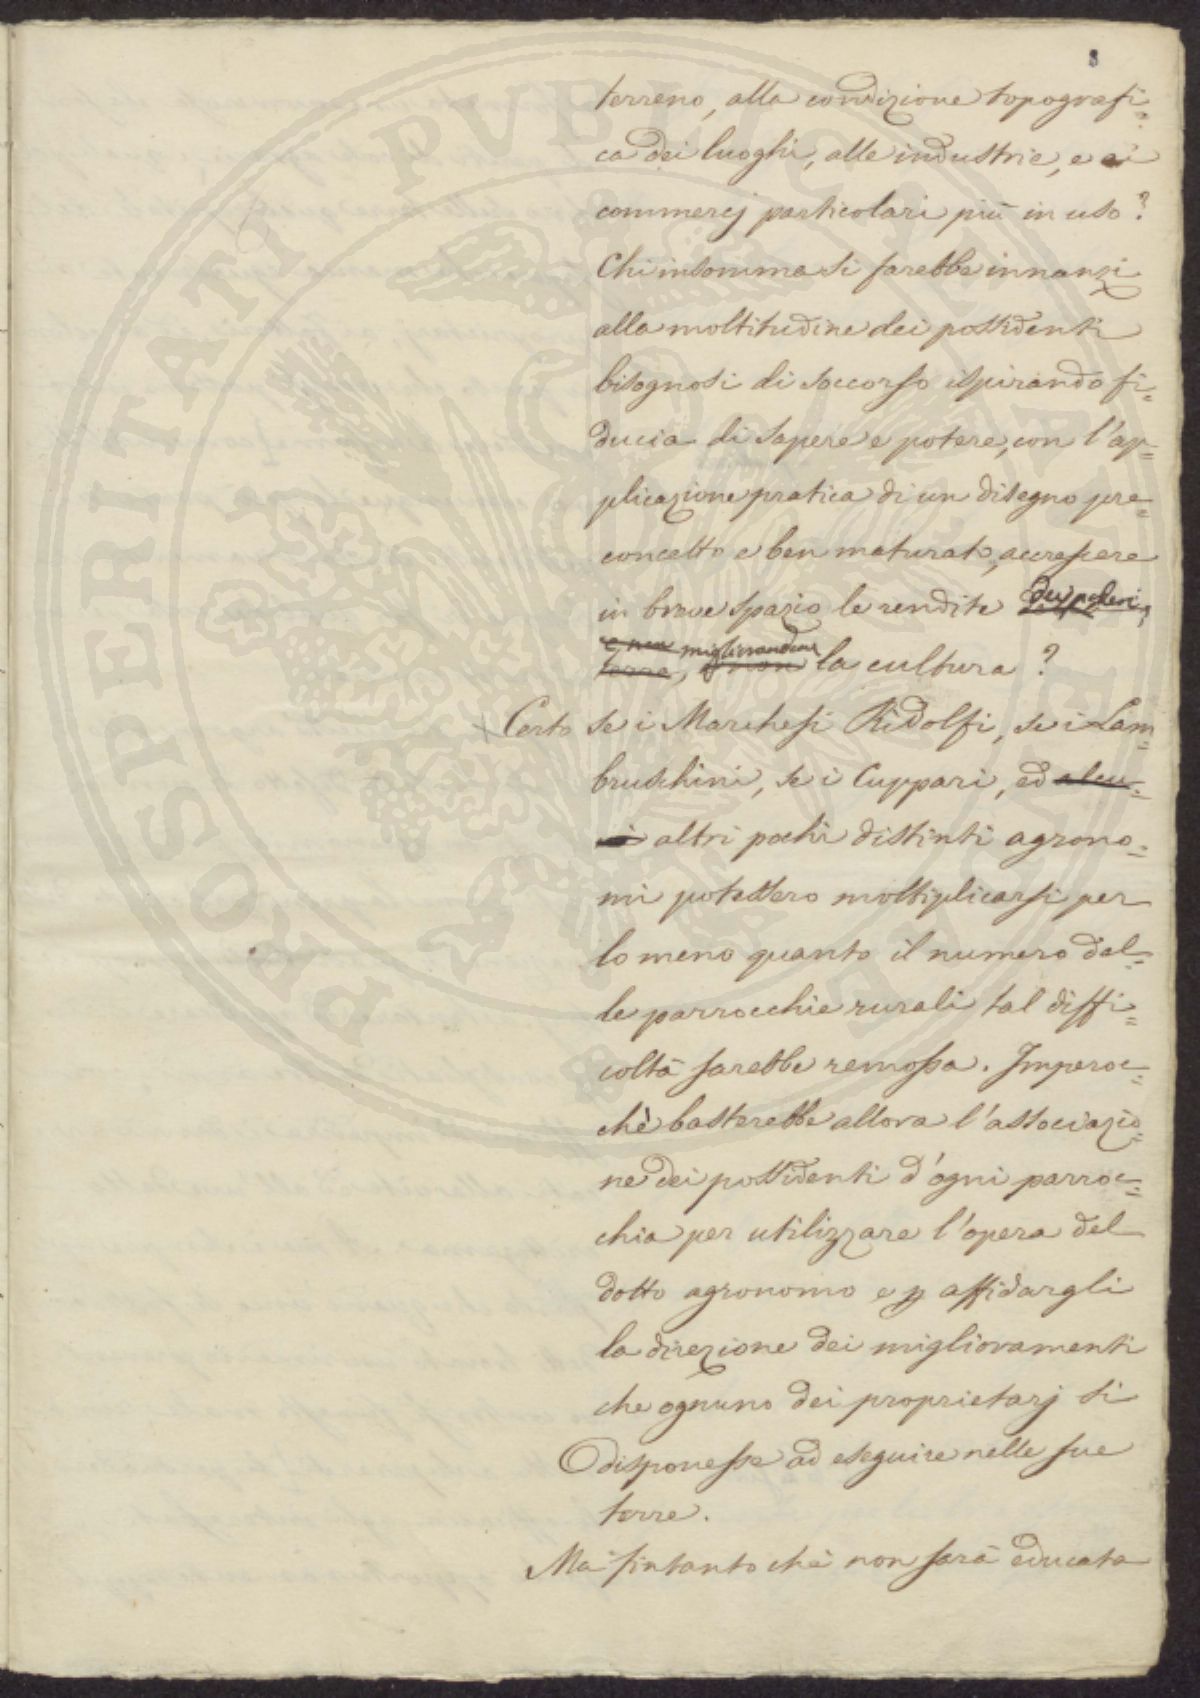 8
terreno, alla condizione topografi=
ca dei luoghi, alle industrie, e ai
commercj particolari più in uso?
Chi insomma si farebbe innanzi
alla moltitudine dei possidenti
bisognosi di soccorso ispirando fi=
ducia di sapere e potere, con l'ap=
plicazione pratica di un disegno pre=
concetto e ben maturato, accrescere
in breve spazio le rendite dei poderi,
migliorandone
terre, e non la cultura?
Certo se i Marchesi Ridolfi, se i Lam=
bruschini, se i Cuppari, ed alcu=
ni altri pochi distinti agrono=
mi potessero moltiplicarsi per
lo meno quanto il numero del=
le parrocchie rurali tal diffi=
coltà sarebbe remossa. Imperoc=
chè basterebbe allora l'associazio=
ne dei possidenti d'ogni parroc=
chia per utilizzare l'opera del
dotto agronomo e p affidargli
la direzione dei miglioramenti
che ognuno dei proprietarj si
disponesse ad eseguire nelle sue
terre.
Ma fintanto chè non sarà educata
PROSPERITATI PUBLICAE